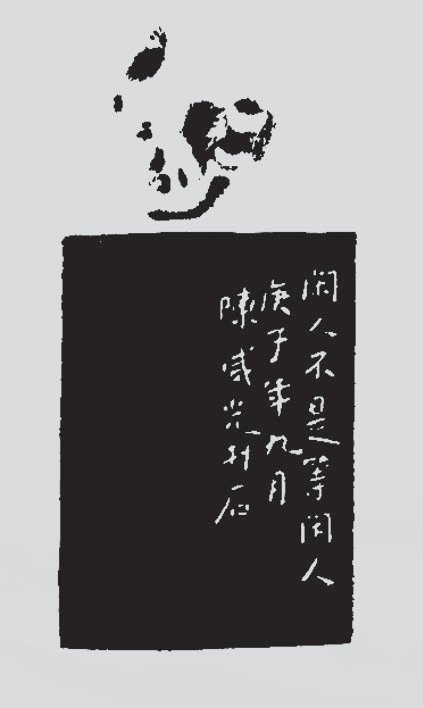 閑人不是等閑人
庚子年九月
陳咸光刊石